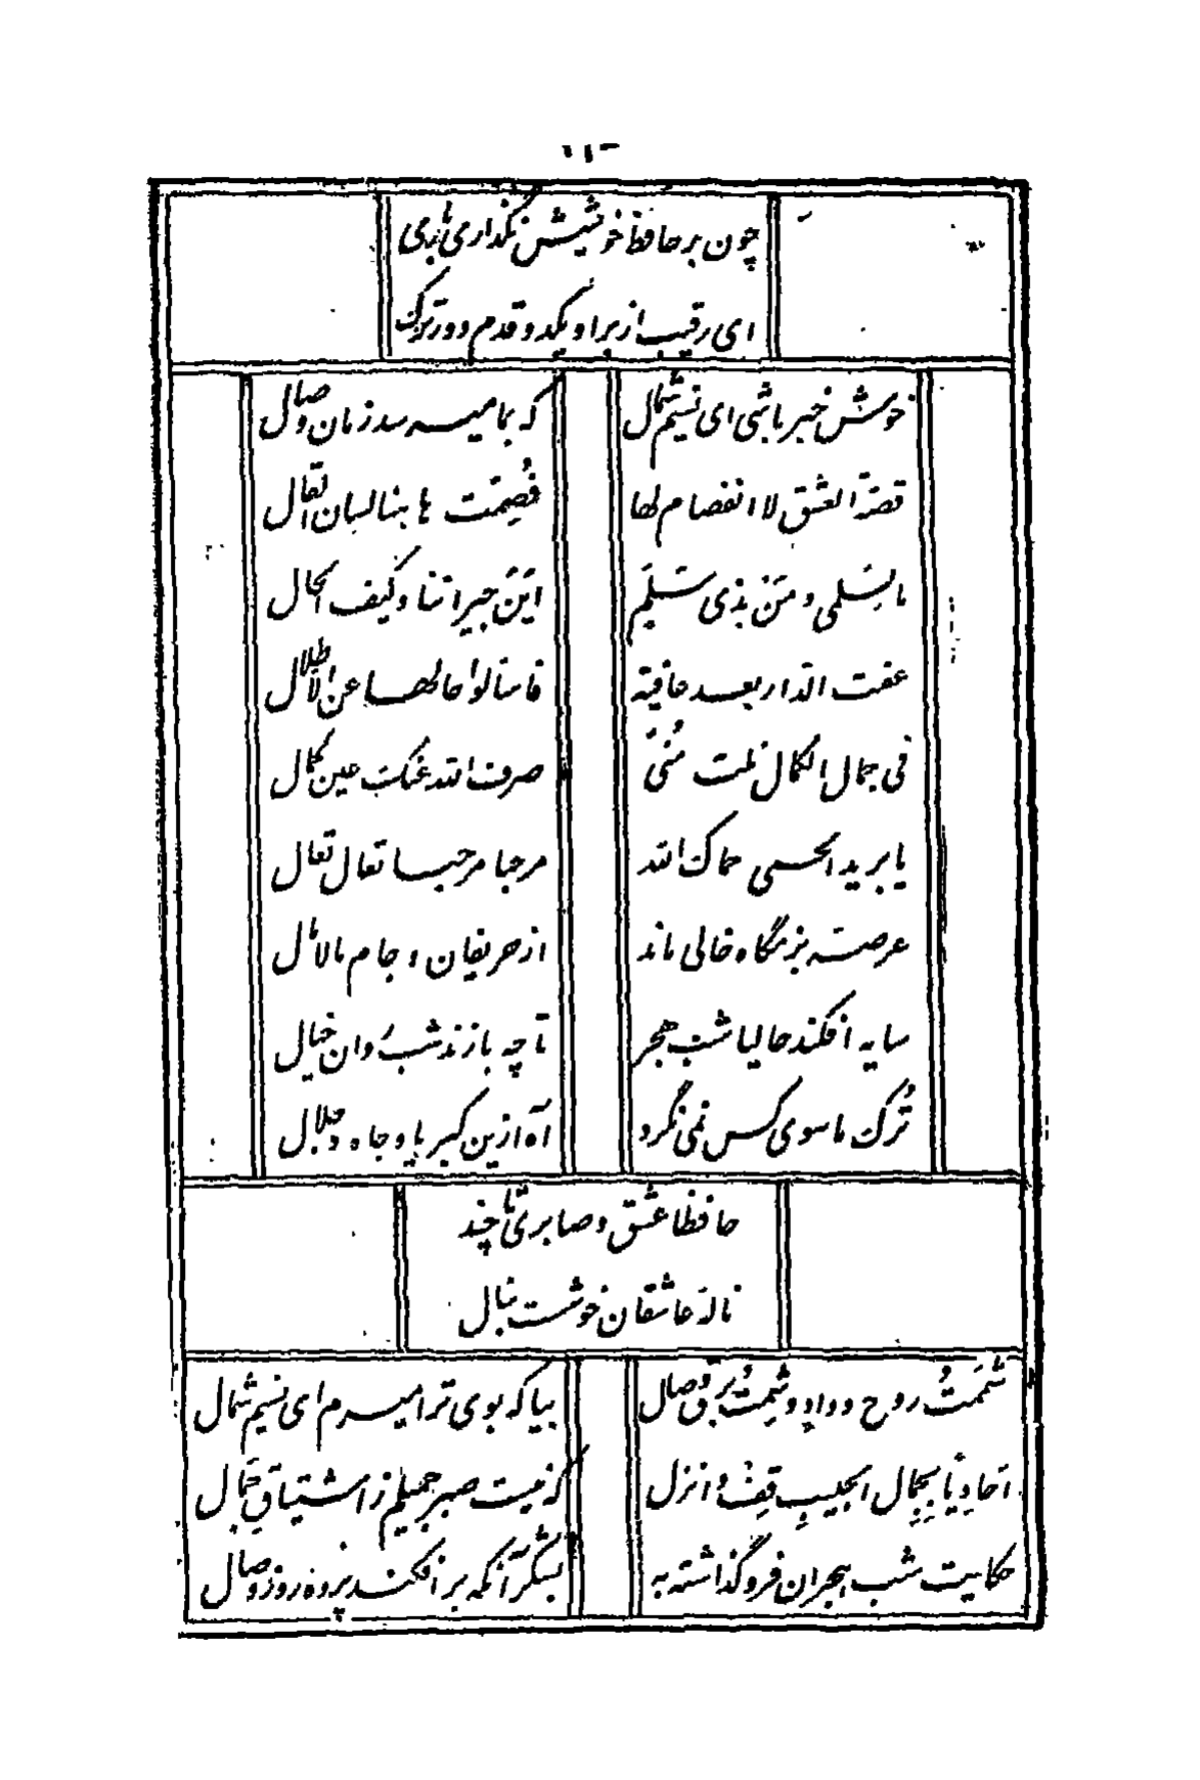 چون بر حافظ خویشش نگذاری باری
ای رقیب از بر او یکدو قدم دورترک
خوش خبر باشی ای نسیم شمال
که بما میرسد زمان وصال
قصة العشق لا انفصام لها
فُصِمَت ها هنا لسان القال
ما بسَلمی و مَن بذی سَلَم
اَینَ جیراننا و کیف الحال
عفت الدار بعد عافیة
فاسالوا حالها عن الاطلال
فی جمال الکمال نلت مُنیً
صرف الله عنک عین کمال
یا برید الحمی حماک الله
مرحبا مرحبا تعال تعال
عرصه بزمگاه خالی ماند
از حریفان و جام مالامال
سایه افکند حالیا شب هجر
تا چه بازند شب رُوان خیال
تُرک ما سوی کس نمی نگرد
آه ازین کبریا و جاه و جلال
حافظا عشق و صابری تا چند
نالهٔ عاشقان خوشست بنال
شَمَمتُ روح وداد و شِمتُ برق وصال
بیا که بوی ترا میرم ای نسیم شمال
احادیاً بجِمال الحبیبِ قِف و انزل
که نیست صبر جمیلم ز اشتیاقِ جَمال
حکایت شب هجران فرو گذاشته به
بشکر آنکه برافکند پرده روز وصال